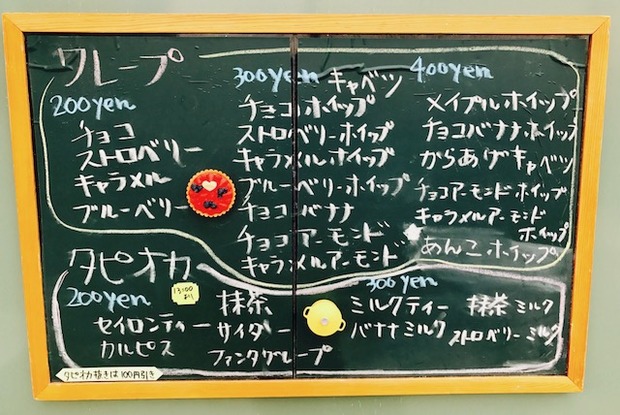 クレープ
200yen
チョコ
ストロベリー
キャラメル
ブルーベリー
300yen
キャベツ
チョコホイップ
ストロベリーホイップ
キャラメルホイップ
ブルーベリーホイップ
チョコバナナ
チョコアーモンド
キャラメルアーモンド
400yen
メイプルホイップ
チョコバナナホイップ
からあげキャベツ
チョコアーモンドホイップ
キャラメルアーモンド
ホイップ
あんこホイップ
タピオカ
200yen
13:00
より
セイロンティー
カルピス
抹茶
サイダー
ファンタグレープ
300yen
ミルクティー 抹茶ミルク
バナナミルク ストロベリーミルク
タピオカ抜きは100円引き